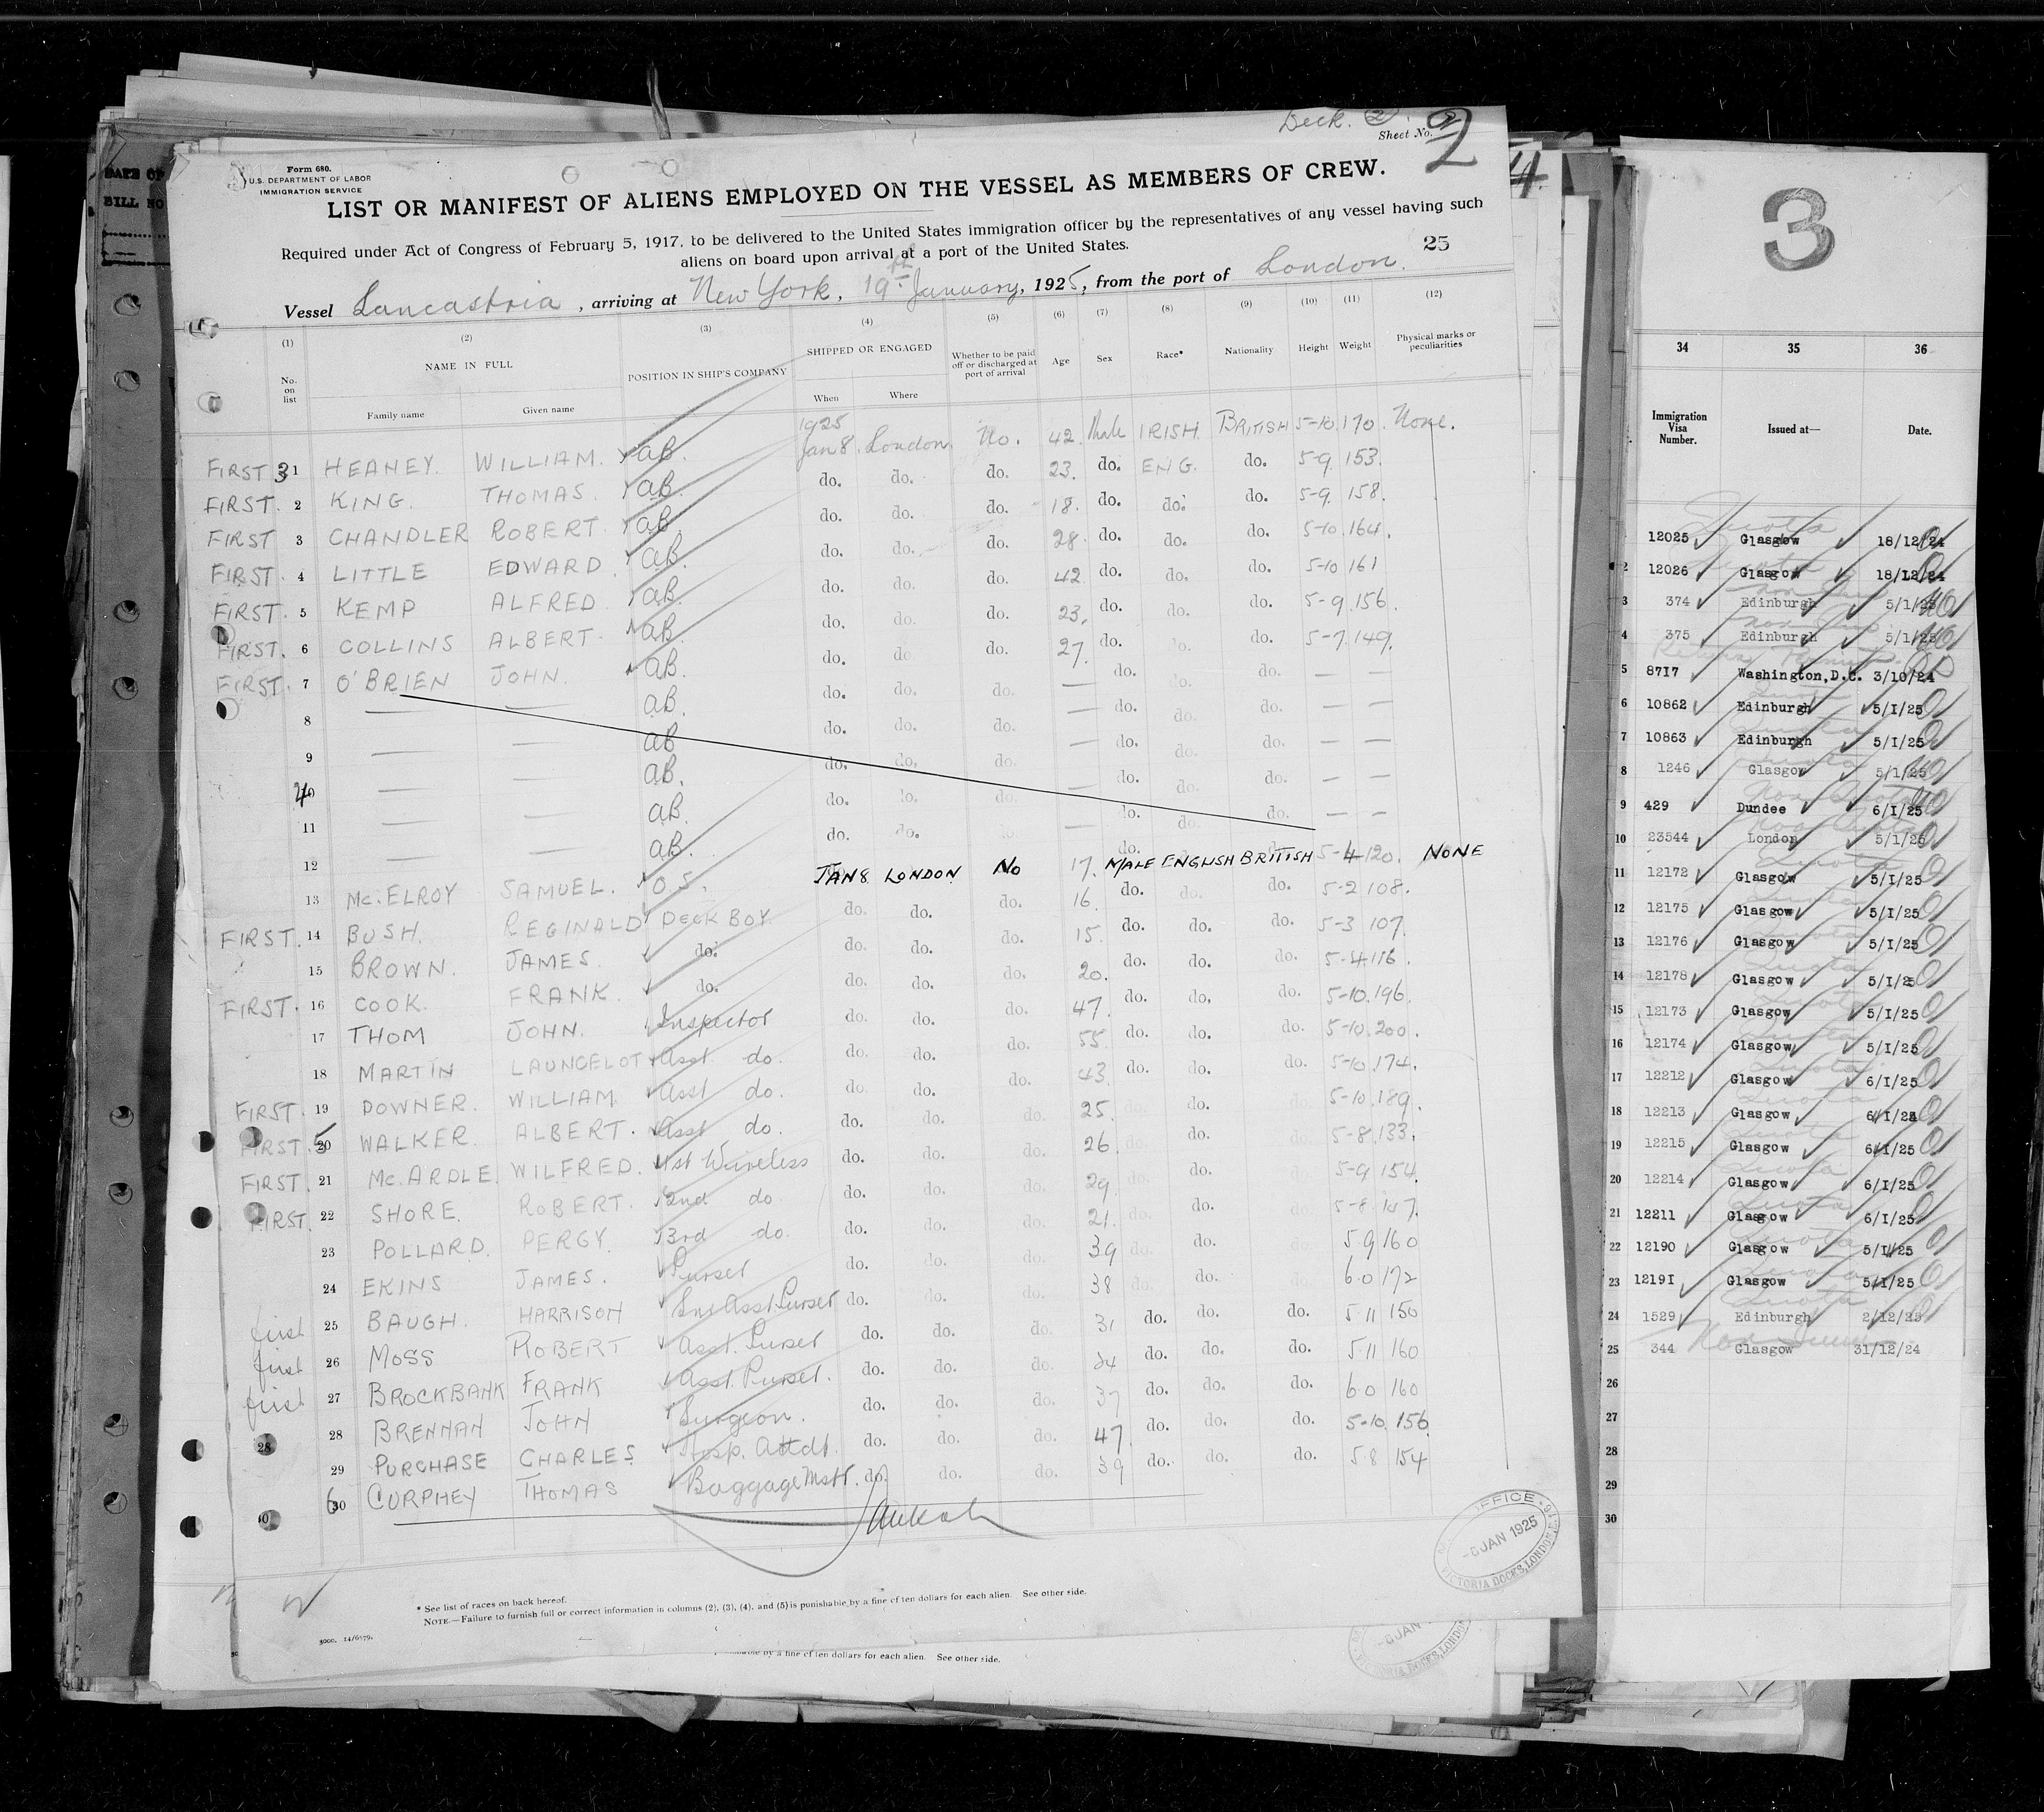 Deck. 2
Sheet No. 2
Form 680.
U.S. DEPARTMENT OF LABOR
IMMIGRATION SERVICE
LIST OR MANIFEST OF ALIENS EMPLOYED ON THE VESSEL AS MEMBERS OF CREW.
Required under Act of Congress of February 5, 1917, to be delivered to the United States immigration officer by the representatives of any vessel having such
aliens on board upon arrival at a port of the United States.
25
Vessel Lancastria, arriving at New York, 19th January, 1925, from the port of London.
(1) (2) (3) (4) (5) (6) (7) (8) (9) (10) (11) (12)
No. on list NAME IN FULL POSITION IN SHIP'S COMPANY SHIPPED OR ENGAGED Whether to be paid off or discharged at port of arrival Age Sex Race* Nationality Height Weight Physical marks or peculiarities
Family name Given name When Where
1925
FIRST 31 HEANEY. WILLIAM. AB. Jan 8. London No. 42. Male IRISH. BRITISH 5-10. 170. None.
FIRST. 2 KING. THOMAS. AB. do. do. do. 23. do. ENG. do. 5-9. 153.
FIRST 3 CHANDLER ROBERT. AB. do. do. do. 18. do. do. do. 5-9. 158.
FIRST. 4 LITTLE EDWARD. AB. do. do. do. 28. do. do. do. 5-10. 164.
FIRST. 5 KEMP ALFRED AB. do. do. do. 42 do. do. do. 5-10 161
FIRST. 6 COLLINS ALBERT. AB. do. do. do. 23. do. do. do. 5-9. 156.
FIRST. 7 O'BRIEN JOHN. AB. do. do do. 27. do. do. do. 5-7. 149.
8 — — AB. do. do. do. — do. do. do. — —
9 — — AB do. do. do. — do. do. do. — —
40 — — AB. do. do. do. — do. do. do. — —
11 — — AB. do. do. do. — do. do. do. — —
12 — — AB. do. do. do. — do. do. do. — —
13 Mc.ELROY SAMUEL. O.S. JAN 8. LONDON No 17. MALE ENGLISH BRITISH 5-4 120. NONE
FIRST. 14 BUSH. REGINALD DECK BOY. do. do. do. 16. do. do. do. 5-2 108.
15 BROWN. JAMES. do. do. do. do. 15. do. do. do. 5-3 107.
FIRST. 16 COOK. FRANK. do. do. do. do. 20. do. do. do. 5-4. 116.
17 THOM JOHN. Inspector do. do. do. 47. do. do. do. 5-10. 196.
18 MARTIN LAUNCELOT Asst do. do. do. do. 55. do. do. do. 5-10. 200.
FIRST. 19 DOWNER. WILLIAM. Asst do. do. do. do. 43. do. do. do. 5-10. 174.
FIRST. 20 WALKER. ALBERT. Asst do. do. do. do. 25. do. do. do. 5-10. 189.
FIRST. 21 Mc.ARDLE. WILFRED. 1st Wireless do. do. do. 26. do. do. do. 5-8. 133.
FIRST. 22 SHORE. ROBERT. 2nd do. do. do. do. 29. do. do. do. 5-9 154.
23 POLLARD. PERCY. 3rd do. do. do. do. 21. do. do. do. 5-8. 147.
24 EKINS JAMES. Purser do. do. do. 39 do. do. do. 5 9 160
first 25 BAUGH. HARRISON Snr Asst Purser do. do. do. 38 do. do. do. 6.0 172
first 26 MOSS ROBERT Asst. Purser do. do. do. 31 do. do. do. 5 11 150
first 27 BROCKBANK FRANK Asst. Purser. do. do. do. 24 do. do. do. 5 11 160
28 BRENNAN JOHN Surgeon. do. do. do. 37 do. do. do. 6.0 160
29 PURCHASE CHARLES Hosp. Attdt. do. do. do. 47. do. do. do. 5-10. 156
30 CURPHEY THOMAS Baggage Mstr. do. do. do. 39 do. do. do. 5 8 154
-8 JAN 1925
VICTORIA DOCKS, LONDON, E.16
* See list of races on back hereof.
NOTE.—Failure to furnish full or correct information in columns (2), (3), (4), and (5) is punishable by a fine of ten dollars for each alien. See other side.
3000. 14/6579.
by a fine of ten dollars for each alien. See other side.
4
3
34 35 36
Immigration Visa Number. Issued at— Date.
12025 Glasgow 18/12/24
2 12026 Glasgow 18/12/24
3 374 Edinburgh 5/1/25
4 375 Edinburgh 5/1/25
5 8717 Washington, D.C. 3/10/24
6 10862 Edinburgh 5/1/25
7 10863 Edinburgh 5/1/25
8 1246 Glasgow 5/1/25
9 429 Dundee 6/1/25
10 23544 London 5/1/25
11 12172 Glasgow 5/1/25
12 12175 Glasgow 5/1/25
13 12176 Glasgow 5/1/25
14 12178 Glasgow 5/1/25
15 12173 Glasgow 5/1/25
16 12174 Glasgow 5/1/25
17 12212 Glasgow 6/1/25
18 12213 Glasgow 6/1/24
19 12215 Glasgow 6/1/25
20 12214 Glasgow 6/1/25
21 12211 Glasgow 6/1/25
22 12190 Glasgow 5/1/25
23 12191 Glasgow 5/1/25
24 1529 Edinburgh 2/12/25
25 344 Glasgow 31/12/24
26
27
28
29
30